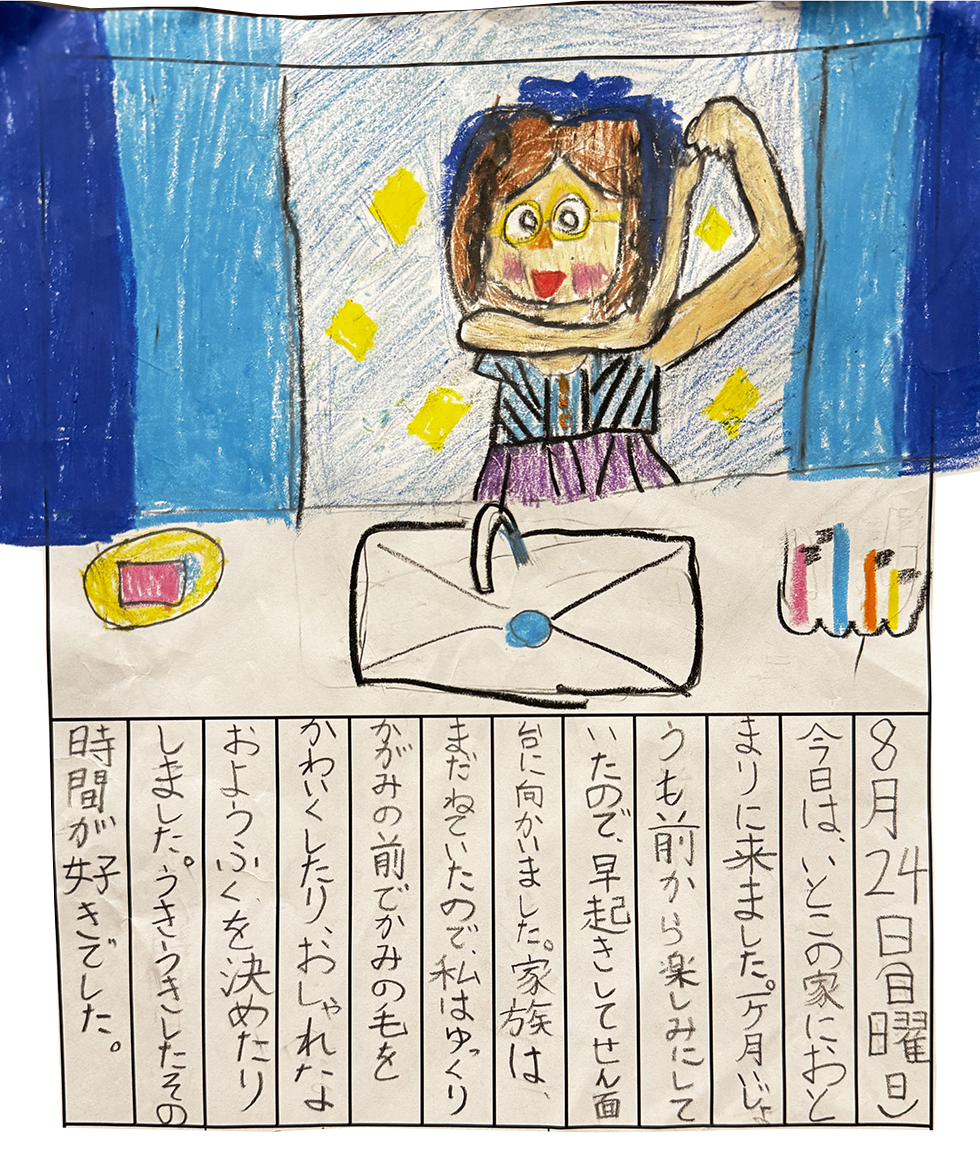 8月24日(日曜日)
今日は、いとこの家におと
まりに来ました。一ケ月いじょ
うも前から楽しみにして
いたので、早起きしてせん面
台に向かいました。家族は、
まだねていたので、私はゆっくり
かがみの前でかみの毛を
かわいくしたり、おしゃれな
おようふくを決めたり
しました。うきうきしたその
時間が好きでした。